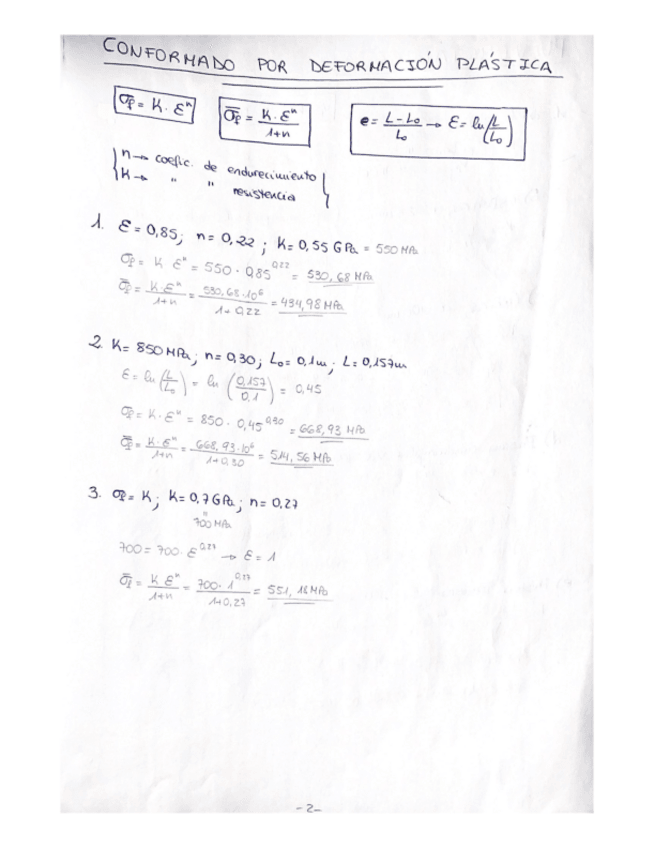 CONFORMADO POR DEFORMACIÓN PLÁSTICA
σf = K · ε^n    σ̄f = K · ε^n / 1+n    e = L - L₀ / L₀ → ε = ln(L/L₀)
n → coefic. de endurecimiento
K → " " resistencia
1. ε = 0,85; n = 0,22 ; K = 0,55 GPa = 550 MPa
σf = K · ε^n = 550 · 0,85^0,22 = 530,68 MPa
σ̄f = K · ε^n / 1+n = 530,68·10⁶ / 1+0,22 = 434,98 MPa
2. K = 850 MPa; n = 0,30; L₀ = 0,1m ; L = 0,157m
ε = ln(L/L₀) = ln(0,157/0,1) = 0,45
σf = K · ε^n = 850 · 0,45^0,30 = 668,93 MPa
σ̄f = K · ε^n / 1+n = 668,93·10⁶ / 1+0,30 = 514,56 MPa
3. σf = K; K = 0,7 GPa; n = 0,27
"
700 MPa
700 = 700 · ε^0,27 → ε = 1
σ̄f = K ε^n / 1+n = 700 · 1^0,27 / 1+0,27 = 551,18 MPa
-2-